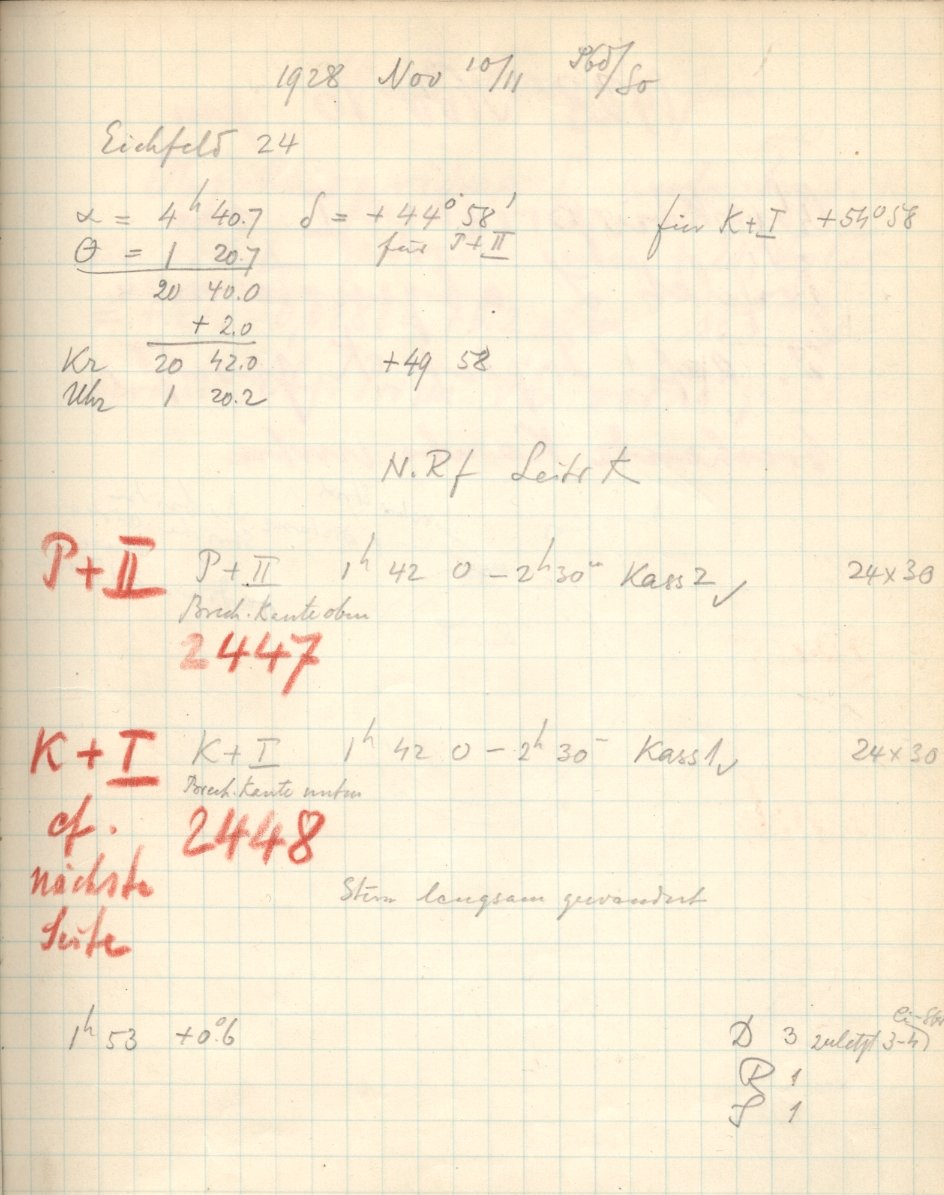 1928 Nov 10/11 Pbd/So
Eichfeld 24
α = 4h 40.7 δ = +44° 58' für K+I +54° 58
θ = 1 20.7 für P+II
20 40.0
+ 2.0
Kr 20 42.0 +49 58
Uhr 1 20.2
N.Rf Leitr K
P+II P+II 1h 42 0 – 2h 30m Kass 2 ✓ 24x30
Brech. Kante oben
2447
K+I K+I 1h 42 0 – 2h 30m Kass 1 ✓ 24x30
Brech. Kante unten
cf. 2448
nächste
Stern langsam gewandert
Seite
1h 53 +0°.6 D 3 zuletzt 3-4)
R 1
S 1